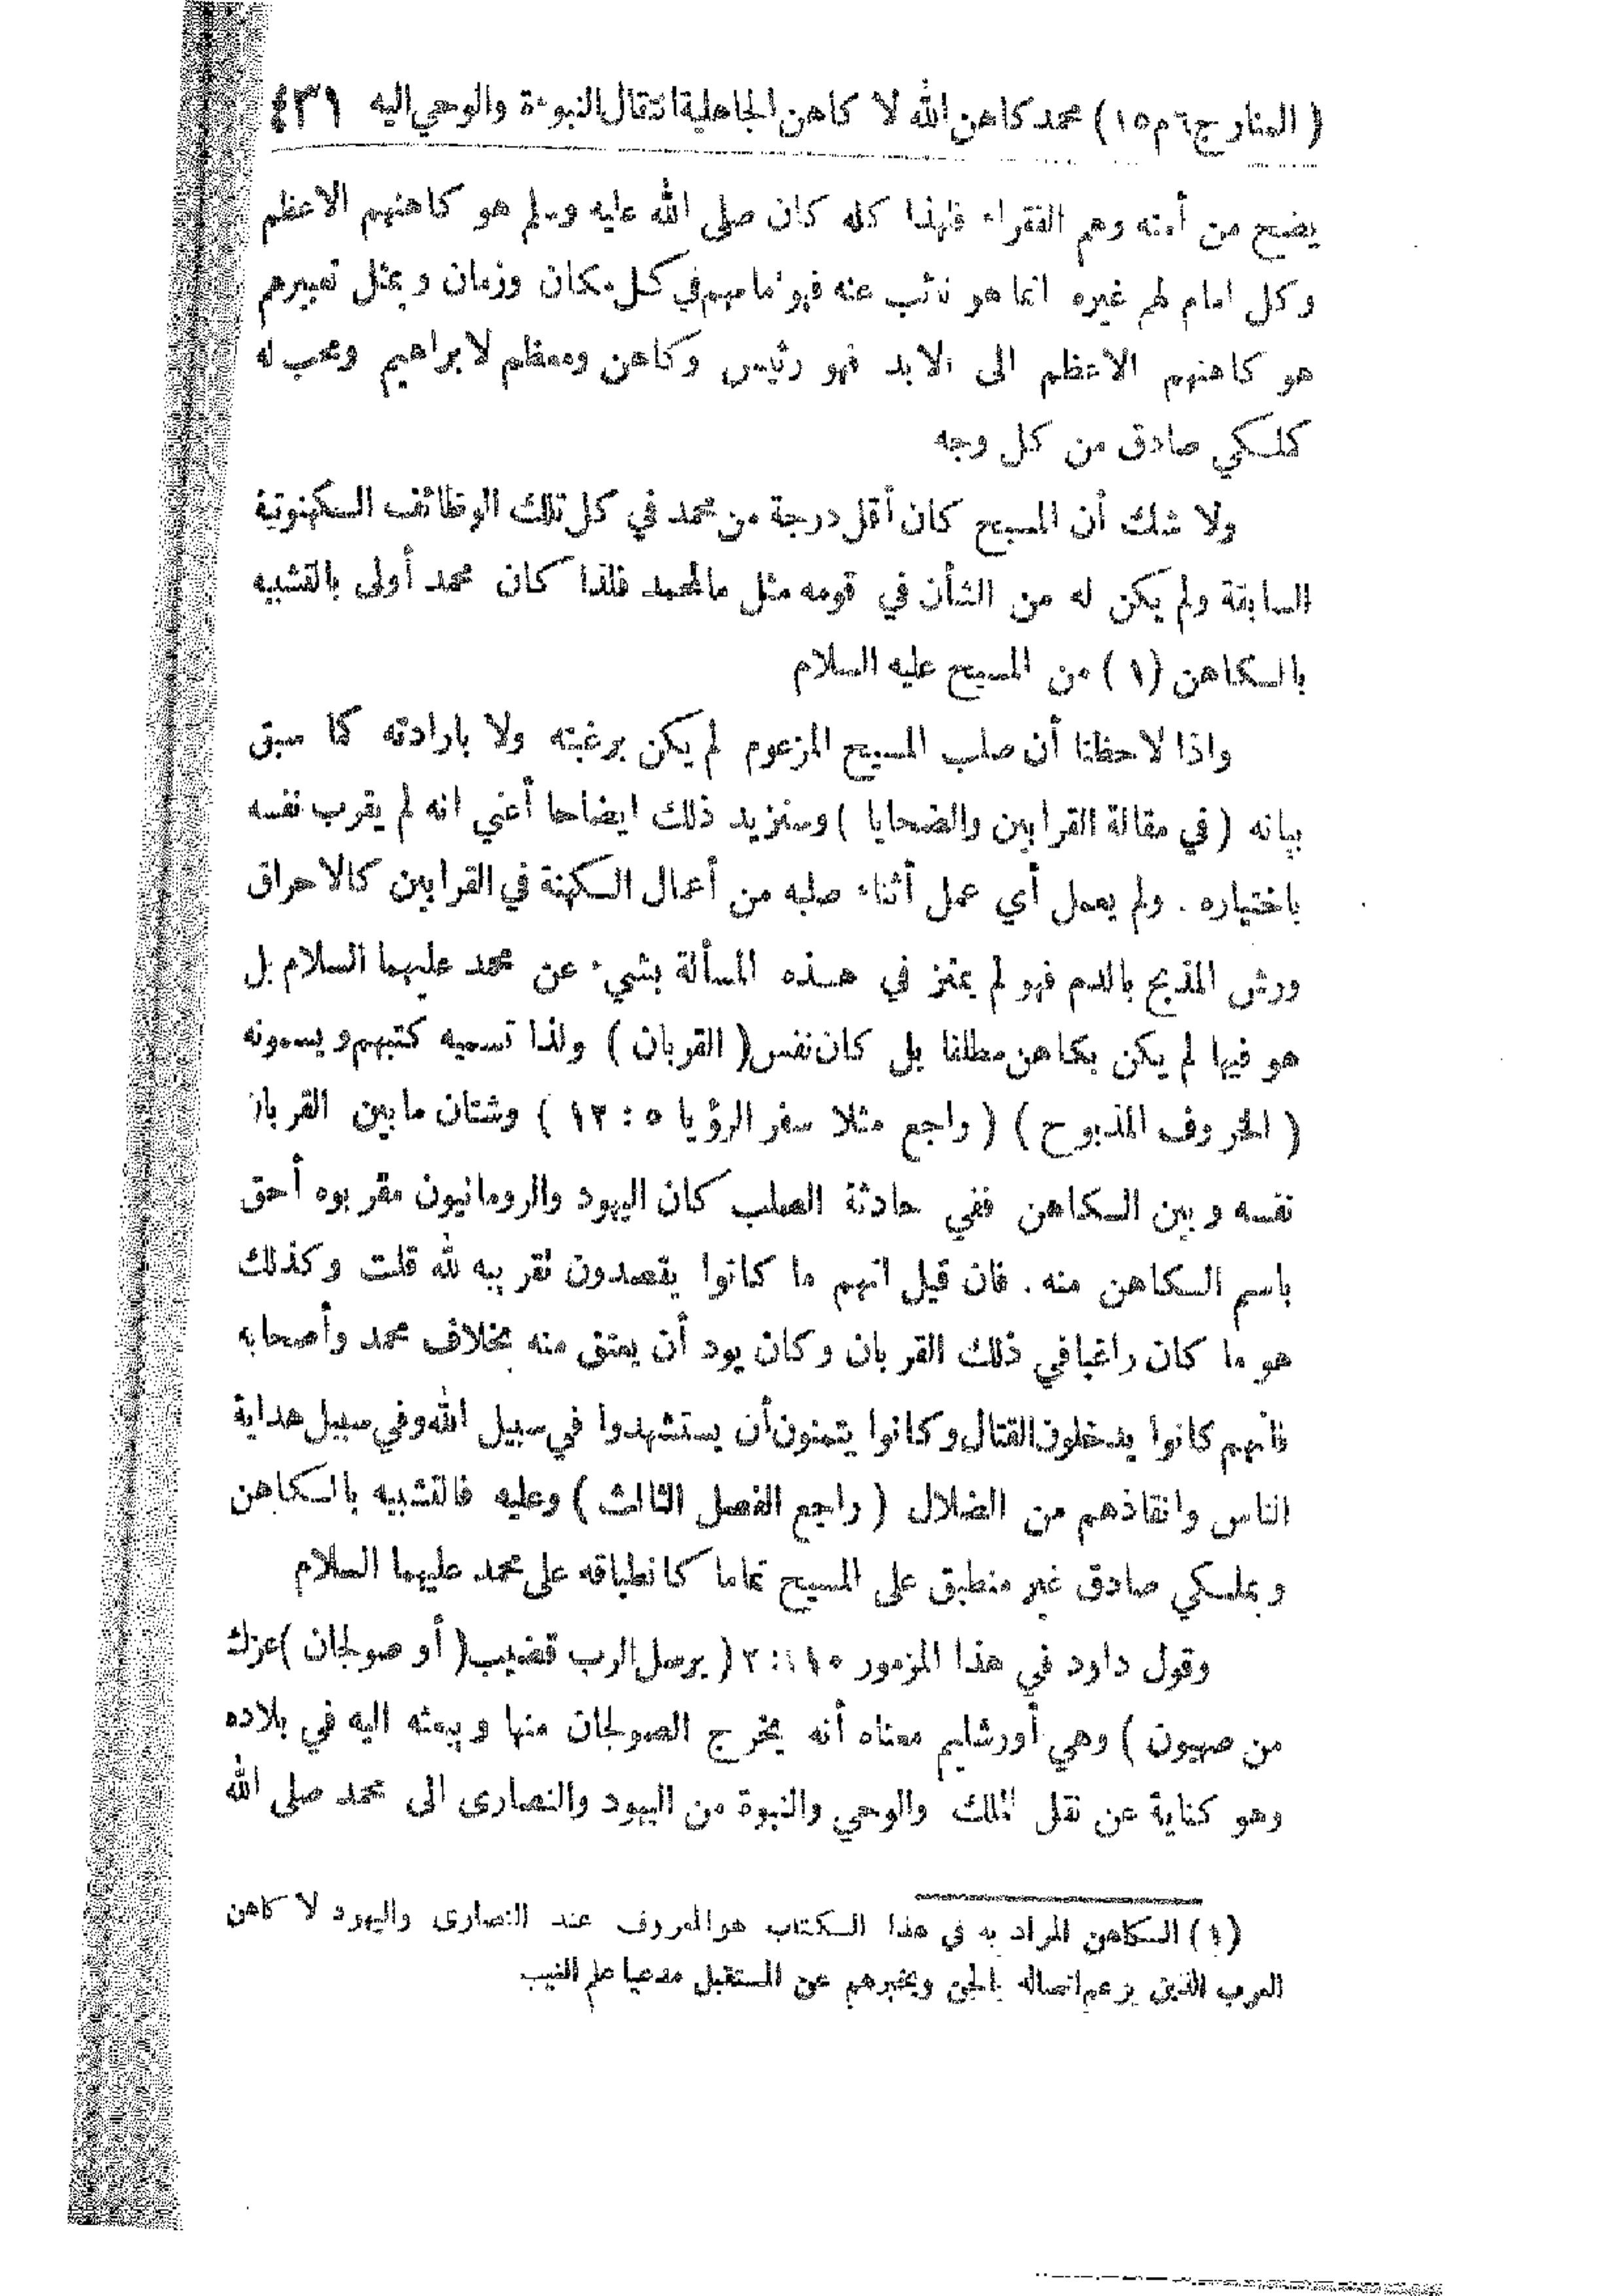 ( المنار ج٦م١٥) محمد كاهن الله لا كاهن الجاهلية انتقال النبوءة والوحي اليه ٤٣٩
يضح من أمته وهم الفقراء فلهذا كله كان صلى الله عليه وسلم هو كاهنهم الاعظم
وكل امام لهم غيره انما هو نائب عنه فهو امامهم في كل مكان وزمان وبمثل تعبيرهم
هو كاهنهم الاعظم الى الابد فهو رئيس وكاهن ومعظم لابراهيم ومحب له
كملكي صادق من كل وجه
ولا شك أن المسيح كان أقل درجة من محمد في كل تلك الوظائف الكهنوتية
السابقة ولم يكن له من الشأن في قومه مثل مالمحمد فلذا كان محمد أولى بالتشبيه
بالكاهن (١) من المسيح عليه السلام
واذا لاحظنا أن صلب المسيح المزعوم لم يكن برغبته ولا بارادته كما سبق
بيانه ( في مقالة القرابين والضحايا ) وسنزيد ذلك ايضاحا أعني انه لم يقرب نفسه
باختياره . ولم يعمل أي عمل أثناء صلبه من أعمال الكهنة في القرابين كالاحراق
ورش المذبح بالدم فهو لم يمتز في هذه المسألة بشيء عن محمد عليهما السلام بل
هو فيها لم يكن بكاهن مطلقا بل كان نفس ( القربان ) ولذا تسميه كتبهم ويسمونه
( الخروف المذبوح ) ( راجع مثلا سفر الرؤيا ٥ : ١٢ ) وشتان ما بين القربان
نفسه وبين الكاهن ففي حادثة الصلب كان اليهود والرومانيون مقربوه أحق
باسم الكاهن منه . فان قيل انهم ما كانوا يقصدون تقريبه لله قلت وكذلك
هو ما كان راغبا في ذلك القربان وكان يود أن يعتق منه بخلاف محمد وأصحابه
فانهم كانوا يدخلون القتال وكانوا يتمنون أن يستشهدوا في سبيل الله وفي سبيل هداية
الناس وانقاذهم من الضلال ( راجع الفصل الثالث ) وعليه فالتشبيه بالكاهن
وبملكي صادق غير منطبق على المسيح تماما كانطباقه على محمد عليهما السلام
وقول داود في هذا المزمور ١١٠ : ٢ ( يرسل الرب قضيب ( أو صولجان ) عزك
من صهيون ) وهي أورشليم معناه أنه يخرج الصولجان منها ويبعثه اليه في بلاده
وهو كناية عن نقل الملك والوحي والنبوة من اليهود والنصارى الى محمد صلى الله
(١) الكاهن المراد به في هذا الكتاب هو المعروف عند النصارى واليهود لا كاهن
العرب الذين يزعم اتصاله بالجن ويخبرهم عن المستقبل مدعيا علم الغيب